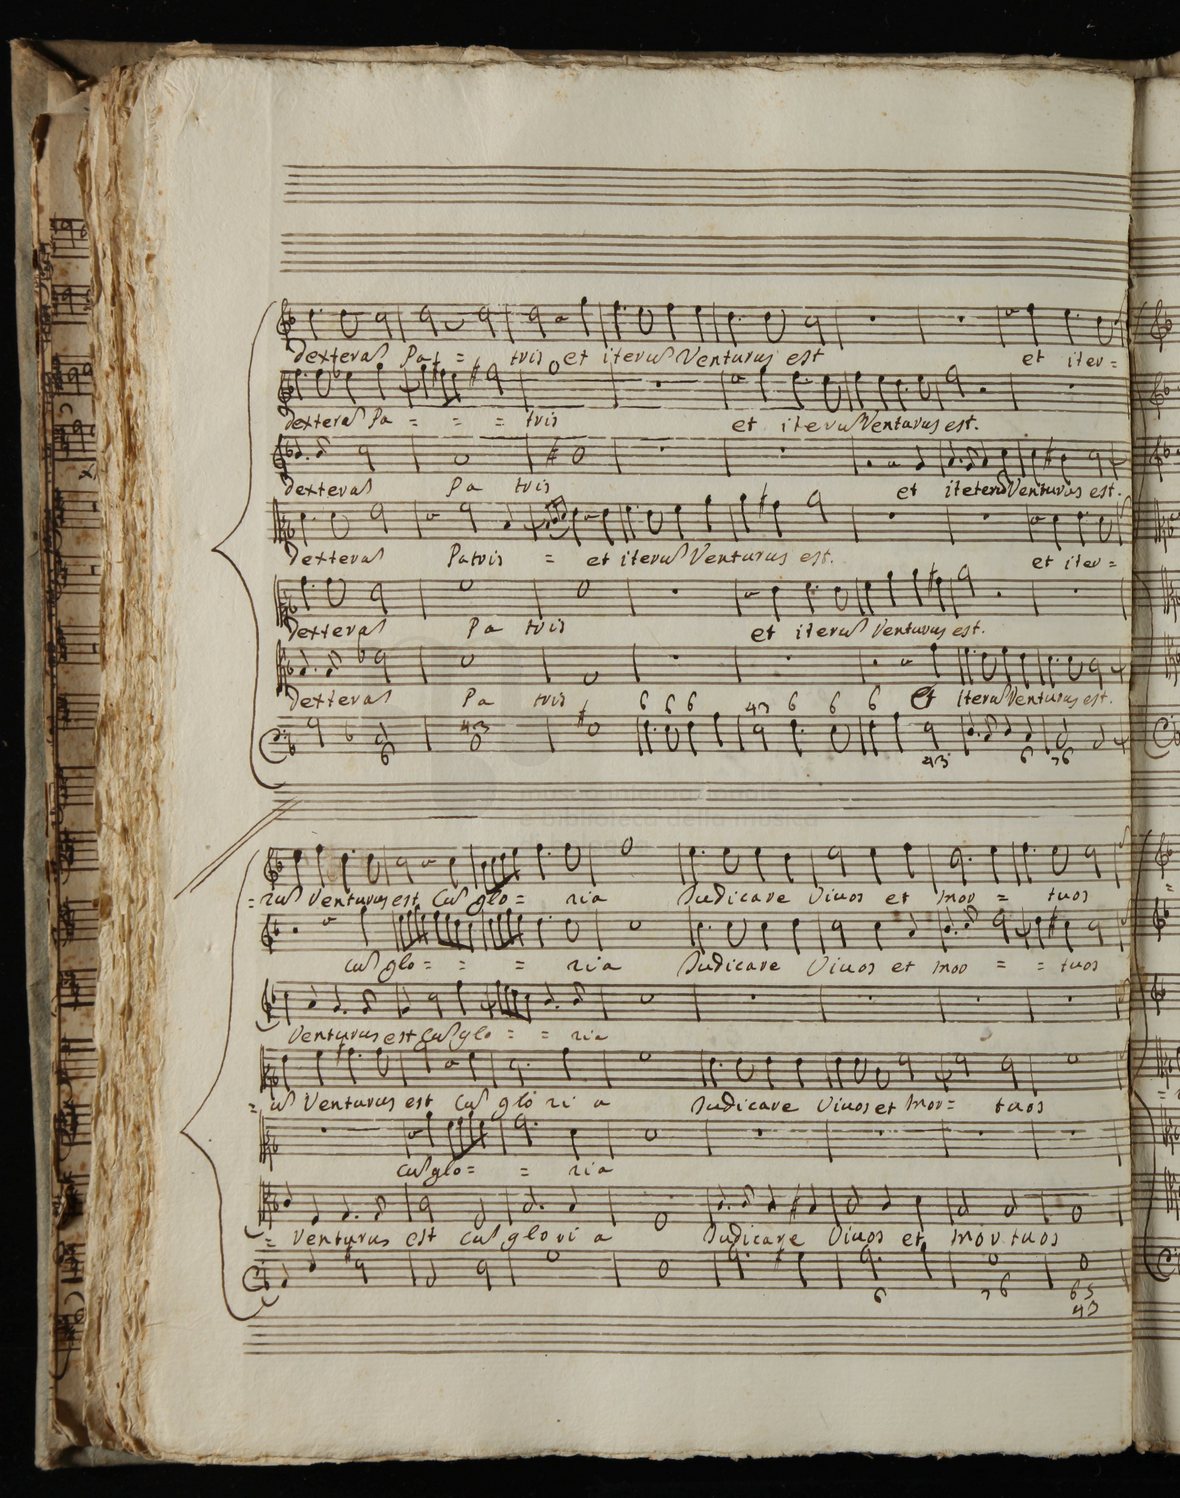 dexteraʃ Pat = tris et iteruʃ Venturus est et iter =
dexteraʃ Pa = = = tris et iteruʃ Venturus est.
dexteraʃ Pa tris et iteruʃ Venturus est.
dexteraʃ Patris = et iteruʃ Venturus est. et iter =
dexteraʃ Pa tris et iteruʃ Venturus est.
dexteraʃ Pa tris et iteruʃ Venturus est.
6 6 6 43 6 6 6
43
6 43 6 76
= ruʃ Venturus est Cuʃ glo = ria Judicare Vivos et mor = tuos
cuʃ glo = = = ria Judicare Vivos et mor = = tuos
Venturus est Cuʃ glo = = ria
= uʃ Venturus est Cuʃ glo ri a Judicare Vivos et Mor = tuos
cuʃ glo = = ria
= Venturus est Cuʃ glo ri a Judicare Vivos et mor tuos
6 76 65
43
museo internazionale
e biblioteca della musica